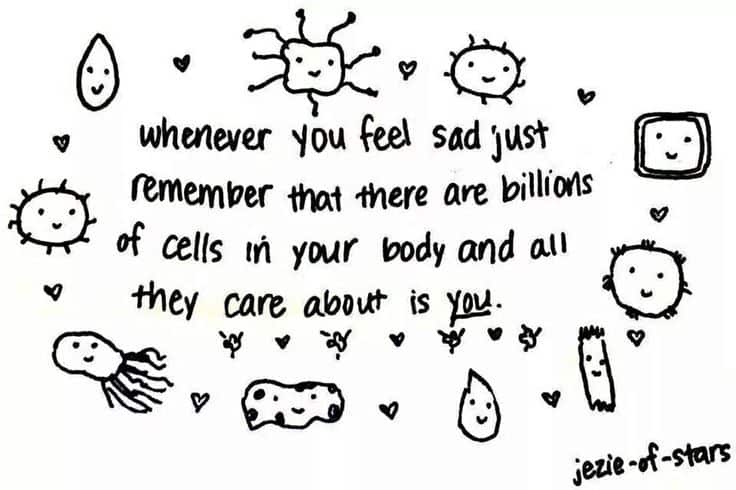 whenever you feel sad just
remember that there are billions
of cells in your body and all
they care about is you.
jezie-of-stars